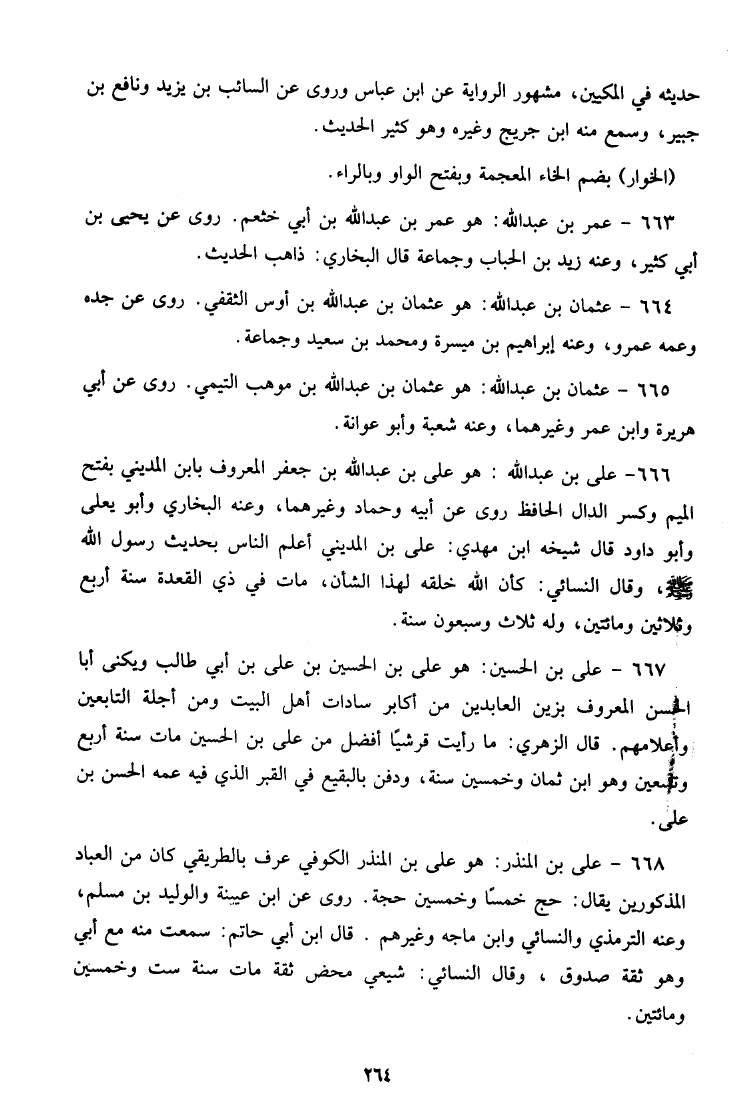 حديثه في المكيين، مشهور الرواية عن ابن عباس وروى عن السائب بن يزيد ونافع بن
جبير، وسمع منه ابن جريج وغيره وهو كثير الحديث.
(الخوار) بضم الخاء المعجمة وبفتح الواو وبالراء.
٦٦٣ - عمر بن عبدالله: هو عمر بن عبدالله بن أبي خثعم. روى عن يحيى بن
أبي كثير، وعنه زيد بن الحباب وجماعة قال البخاري: ذاهب الحديث.
٦٦٤ - عثمان بن عبدالله: هو عثمان بن عبدالله بن أوس الثقفي. روى عن جده
وعمه عمرو، وعنه إبراهيم بن ميسرة ومحمد بن سعيد وجماعة.
٦٦٥ - عثمان بن عبدالله: هو عثمان بن عبدالله بن موهب التيمي. روى عن أبي
هريرة وابن عمر وغيرهما، وعنه شعبة وأبو عوانة.
٦٦٦- على بن عبدالله : هو على بن عبدالله بن جعفر المعروف بابن المديني بفتح
الميم وكسر الدال الحافظ روى عن أبيه وحماد وغيرهما، وعنه البخاري وأبو يعلى
وأبو داود قال شيخه ابن مهدي: على بن المديني أعلم الناس بحديث رسول الله
ﷺ، وقال النسائي: كأن الله خلقه لهذا الشأن، مات في ذي القعدة سنة أربع
وثلاثين ومائتين، وله ثلاث وسبعون سنة.
٦٦٧ - على بن الحسين: هو على بن الحسين بن على بن أبي طالب ويكنى أبا
الحسن المعروف بزين العابدين من أكابر سادات أهل البيت ومن أجلة التابعين
وأعلامهم. قال الزهري: ما رأيت قرشيًا أفضل من على بن الحسين مات سنة أربع
وتسعين وهو ابن ثمان وخمسين سنة، ودفن بالبقيع في القبر الذي فيه عمه الحسن بن
على.
٦٦٨ - على بن المنذر: هو على بن المنذر الكوفي عرف بالطريقي كان من العباد
المذكورين يقال: حج خمسًا وخمسين حجة. روى عن ابن عيينة والوليد بن مسلم،
وعنه الترمذي والنسائي وابن ماجه وغيرهم . قال ابن أبي حاتم: سمعت منه مع أبي
وهو ثقة صدوق ، وقال النسائي: شيعي محض ثقة مات سنة ست وخمسين
ومائتين.
٢٦٤